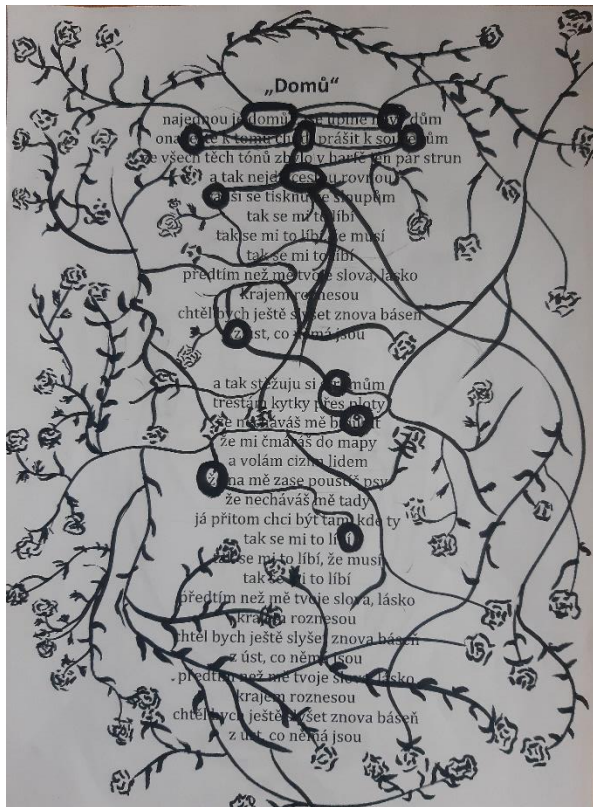 „Domů“
najednou je domů úplně dům
ona k tomu prášit k
ze všech těch tónů zbylo v harfě jen pár strun
a tak nejdu cestou rovnou
si se tisknu sloupům
tak se mi to líbí
tak se mi to líbí, že musí
tak se mi to líbí
předtím než mě tvoje slova, lásko
krajem roznesou
chtěl bych ještě slyšet znova báseň
z úst, co němá jsou
a tak stěžuju si
trestám kytky přes ploty
že necháváš mě
že mi čmáráš do mapy
a volám cizím lidem
na mě zase pouštíš psy
že necháváš mě tady
já přitom chci být tam, kde ty
tak se mi to líbí
tak se mi to líbí, že musí
tak se mi to líbí
předtím než mě tvoje slova, lásko
krajem roznesou
chtěl bych ještě slyšet znova báseň
z úst, co němá jsou
předtím než mě tvoje slova, lásko
krajem roznesou
chtěl bych ještě slyšet znova báseň
z úst, co němá jsou